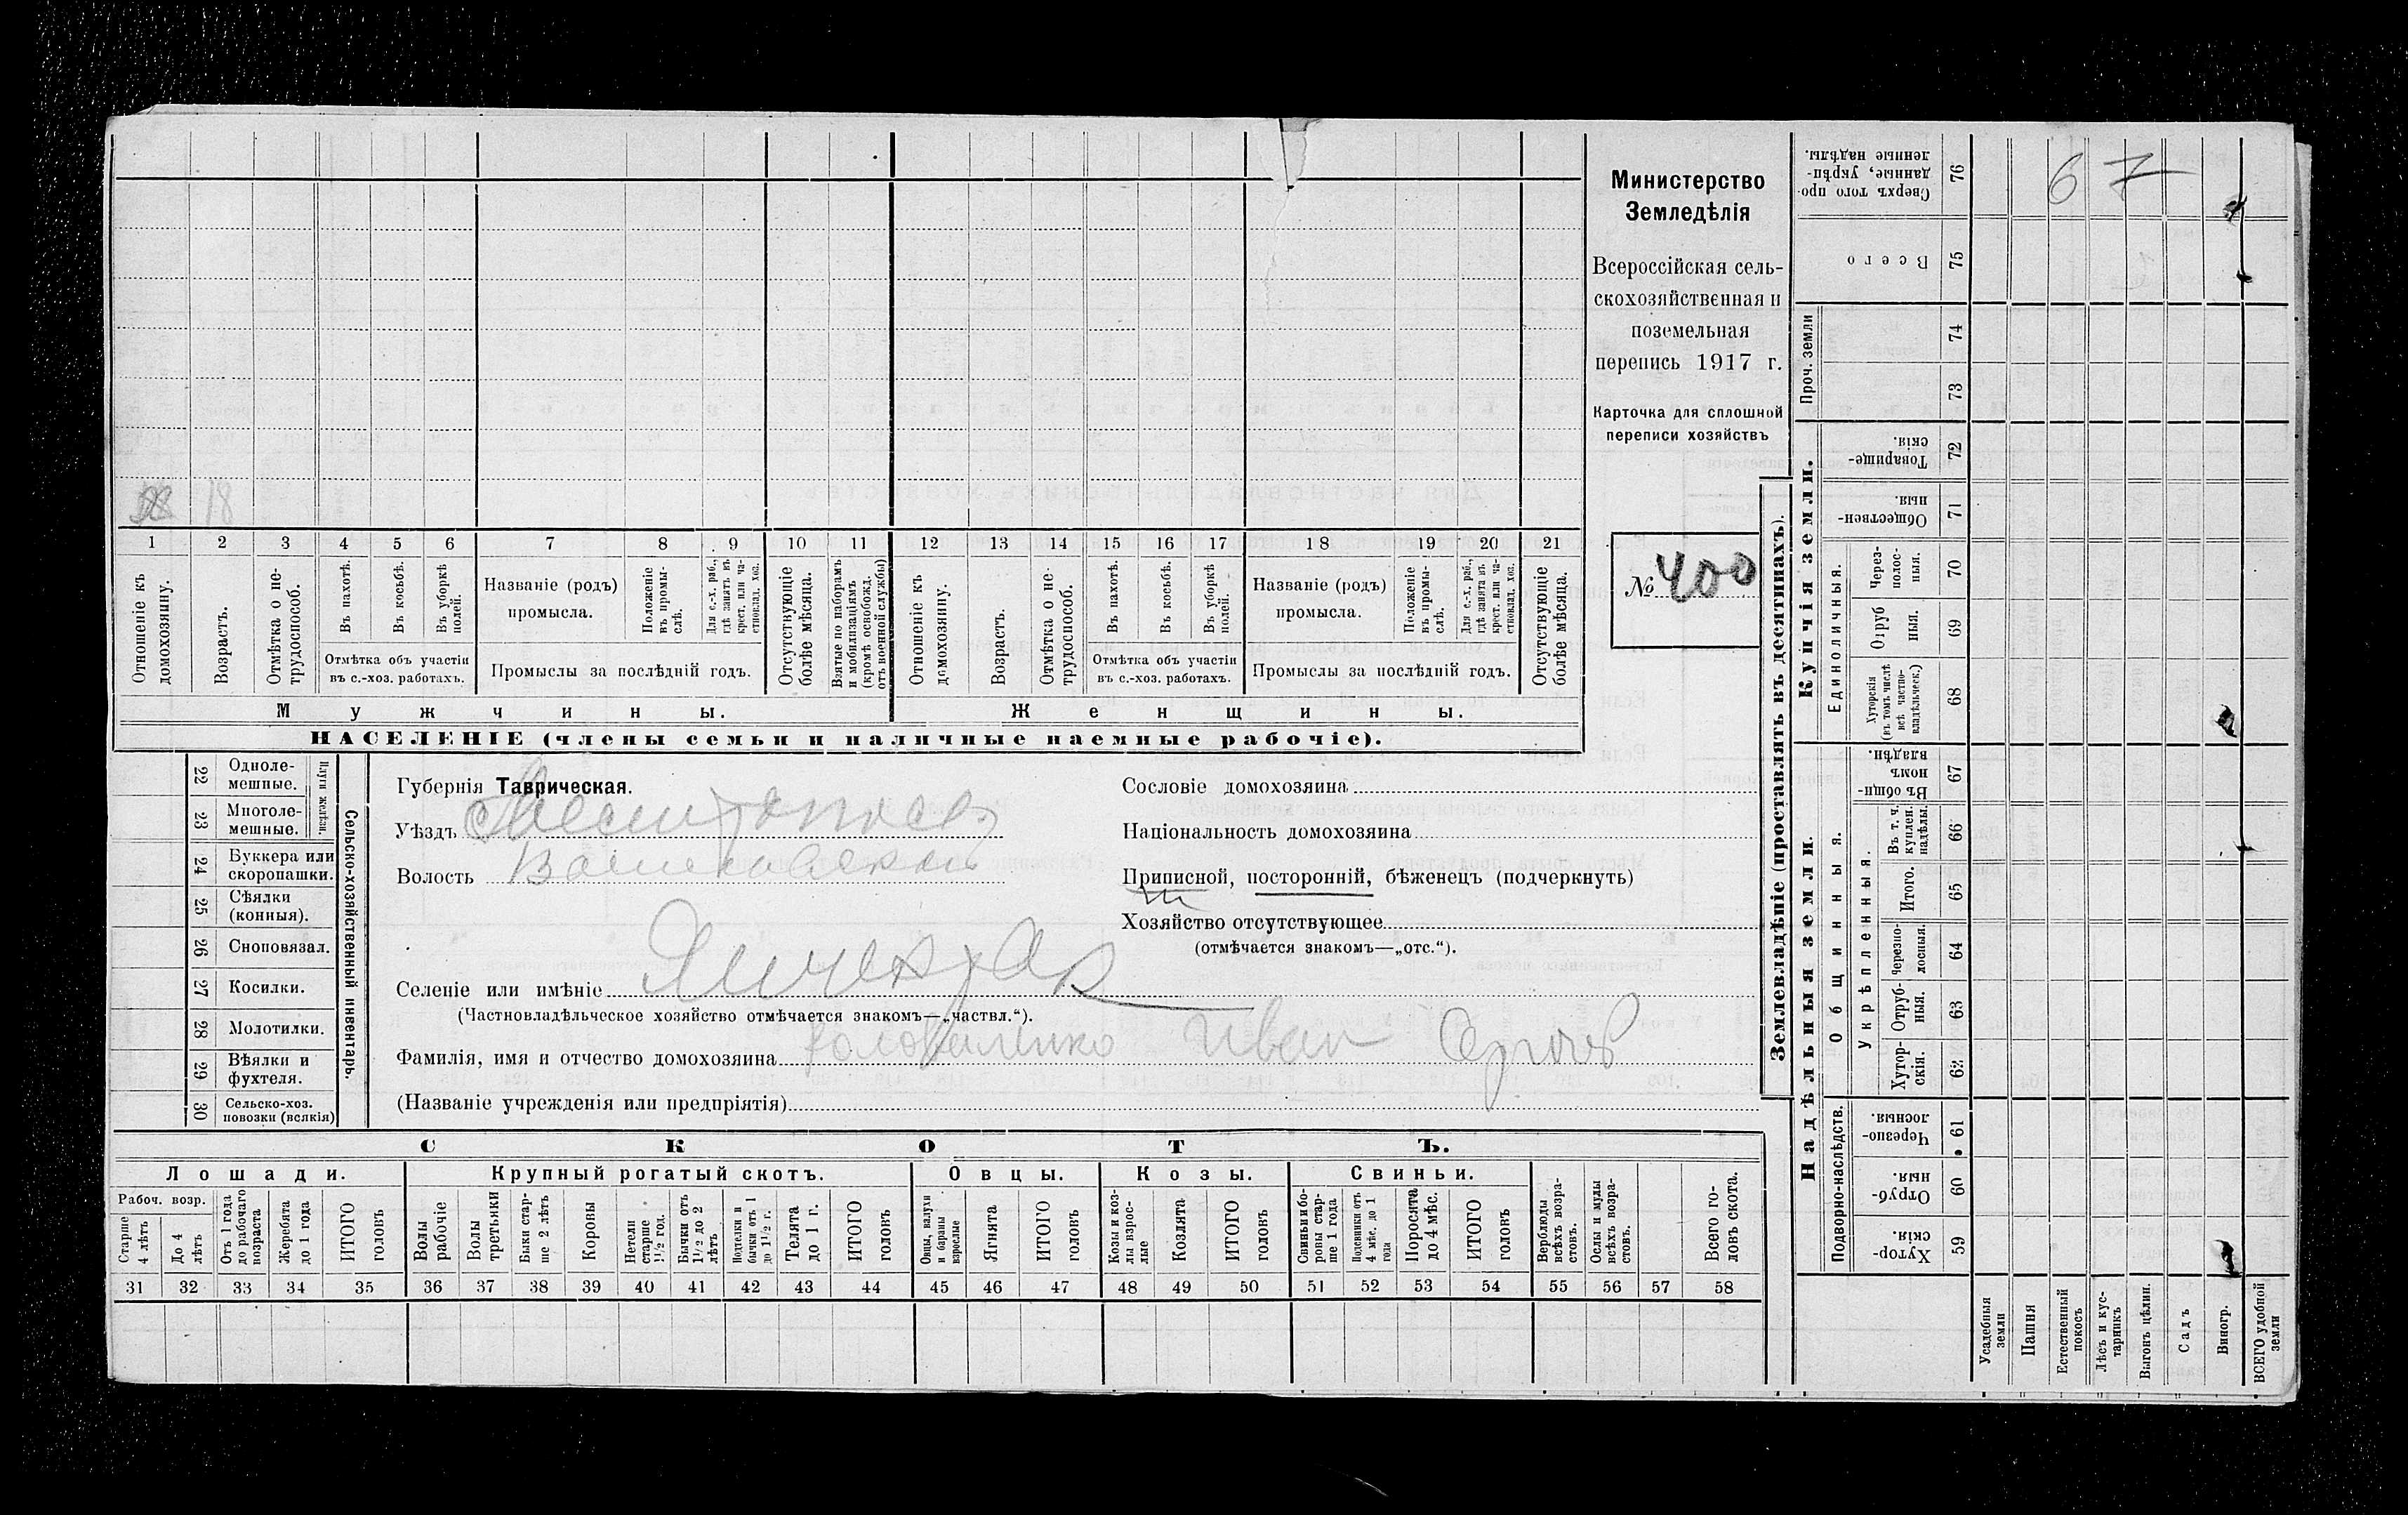 Министерство
Земледѣлія
Всероссійская сель-
скохозяйственная и
поземельная
перепись 1917 г.
Карточка для сплошной
переписи хозяйствъ
№ 400
18
1 2 3 4 5 6 7 8 9 10 11 12 13 14 15 16 17 18 19 20 21
Отношеніе къ домохозяину.
Возрастъ.
Отмѣтка о не-трудоспособ.
Въ пахотѣ.
Въ косьбѣ.
Въ уборкѣ полей.
Отмѣтка объ участіи
въ с.-хоз. работахъ.
Названіе (родъ)
промысла.
Положеніе въ промы-слѣ.
Для с.-х. раб., гдѣ занятъ въ крест. или ча-стновлад. хоз.
Промыслы за послѣдній годъ.
Отсутствующіе болѣе мѣсяца.
Взятые по наборамъ и мобилизаціямъ (кромѣ освобожд. отъ военной службы)
Отношеніе къ домохозяину.
Возрастъ.
Отмѣтка о не-трудоспособ.
Въ пахотѣ.
Въ косьбѣ.
Въ уборкѣ полей.
Отмѣтка объ участіи
въ с.-хоз. работахъ.
Названіе (родъ)
промысла.
Положеніе въ промы-слѣ.
Для с.-х. раб., гдѣ занятъ въ крест. или ча-стновлад. хоз.
Промыслы за послѣдній годъ.
Отсутствующіе болѣе мѣсяца.
Мужчины. Женщины.
НАСЕЛЕНІЕ (члены семьи и наличные наемные рабочіе).
22 Одноле-мешные.
23 Многоле-мешные.
Плуги желѣзн.
24 Буккера или скоропашки.
25 Сѣялки (конныя).
26 Сноповязал.
27 Косилки.
28 Молотилки.
29 Вѣялки и фухтеля.
30 Сельско-хоз. повозки (всякія)
Сельско-хозяйственный инвентарь.
Губернія Таврическая.
Уѣздъ
Волость
Селеніе или имѣніе
(Частновладѣльческое хозяйство отмѣчается знакомъ—„частвл.“).
Фамилія, имя и отчество домохозяина Иван
(Названіе учрежденія или предпріятія)
Сословіе домохозяина
Національность домохозяина
Приписной, посторонній, бѣженецъ (подчеркнуть)
Хозяйство отсутствующее
(отмѣчается знакомъ—„отс.“).
СКОТЪ.
Лошади. Крупный рогатый скотъ. Овцы. Козы. Свиньи.
Рабоч. возр.
Старше 4 лѣтъ
До 4 лѣтъ
Отъ 1 года до рабочаго возраста
Жеребята до 1 года
ИТОГО головъ
Волы рабочіе
Волы третьяки
Быки стар-ше 2 лѣтъ
Коровы
Нетели старше 1½ год.
Бычки отъ 1½ до 2 лѣтъ
Подтелки и бычки отъ 1 до 1½ г.
Телята до 1 г.
ИТОГО головъ
Овцы, валухи и бараны взрослые
Ягнята
ИТОГО головъ
Козы и коз-лы взрос-лые
Козлята
ИТОГО головъ
Свиньи и бо-ровы стар-ше 1 года
Подсвинки отъ 4 мѣс. до 1 года
Поросята до 4 мѣс.
ИТОГО головъ
Верблюды всѣхъ возра-стовъ.
Ослы и мулы всѣхъ возра-стовъ.
Всего го-ловъ скота.
31 32 33 34 35 36 37 38 39 40 41 42 43 44 45 46 47 48 49 50 51 52 53 54 55 56 57 58
Землевладѣніе (проставлять въ десятинахъ).
Купчія земли.
Надѣльныя земли.
Сверхъ того про-данные, укрѣп-ленные надѣлы. 76
Всего 75
Проч. земли
74
73
Товарище-скія. 72
Обществен-ныя. 71
Единоличныя.
Через-полос-ныя. 70
Отруб ныя. 69
Хуторскія (въ томъ числѣ всѣ частно-владѣльческ.) 68
Въ общи-номъ владѣн. 67
Общинныя.
Укрѣпленныя.
Въ т. ч. куплен. надѣлы. 66
Итого. 65
Черезпо-лосныя. 64
Отруб-ныя. 63
Хутор-скія. 62
Подворно-наслѣдств.
Черезпо-лосныя. 61
Отруб-ныя. 60
Хутор-скія. 59
67
Усадебныя земли
Пашня
Естественный покосъ
Лѣсъ и кус-тарникъ
Выгонъ цѣлин.
Садъ
Виногр.
ВСЕГО удобной земли